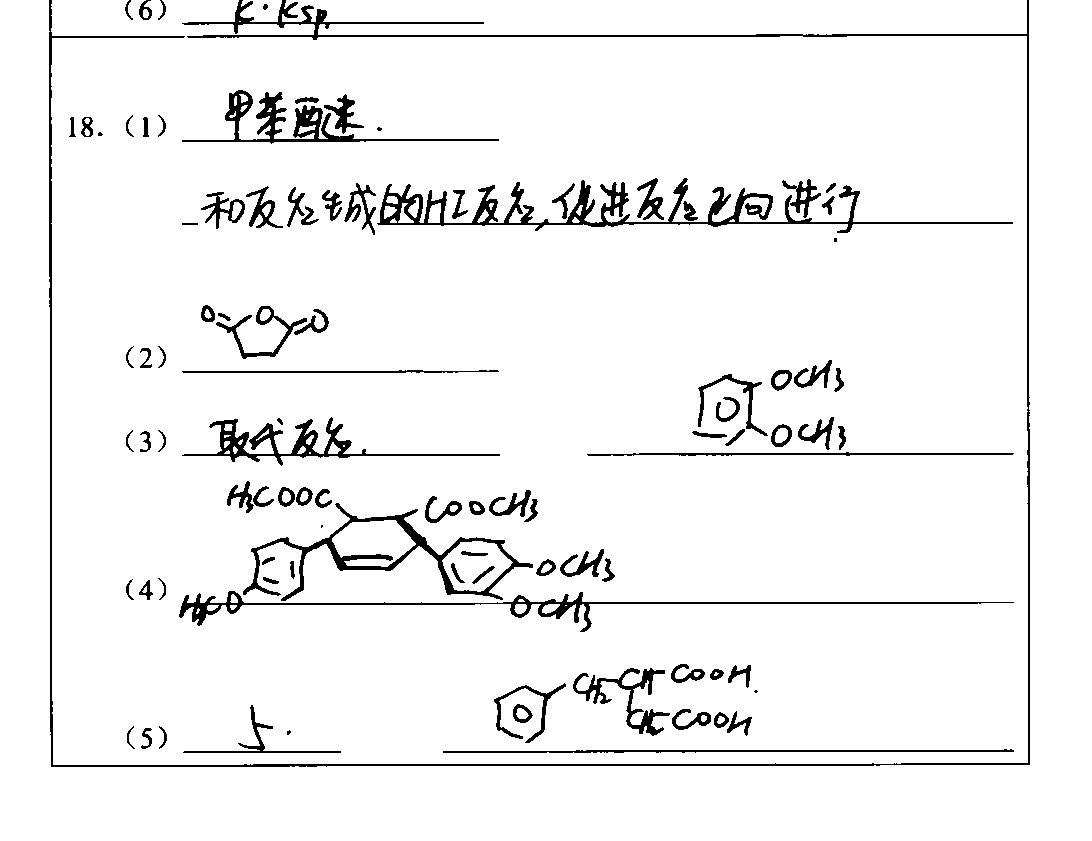 (6) K·Ksp.
18. (1) 甲苯醚迷.
和反应生成的HI反应,促进反应正向进行.
O O O
(2)
OCH3
(3) 取代反应. OCH3
H3COOC COOCH3
OCH3
(4) H3CO OCH3
CH2 CH COOH.
(5) 5. CH2COOH